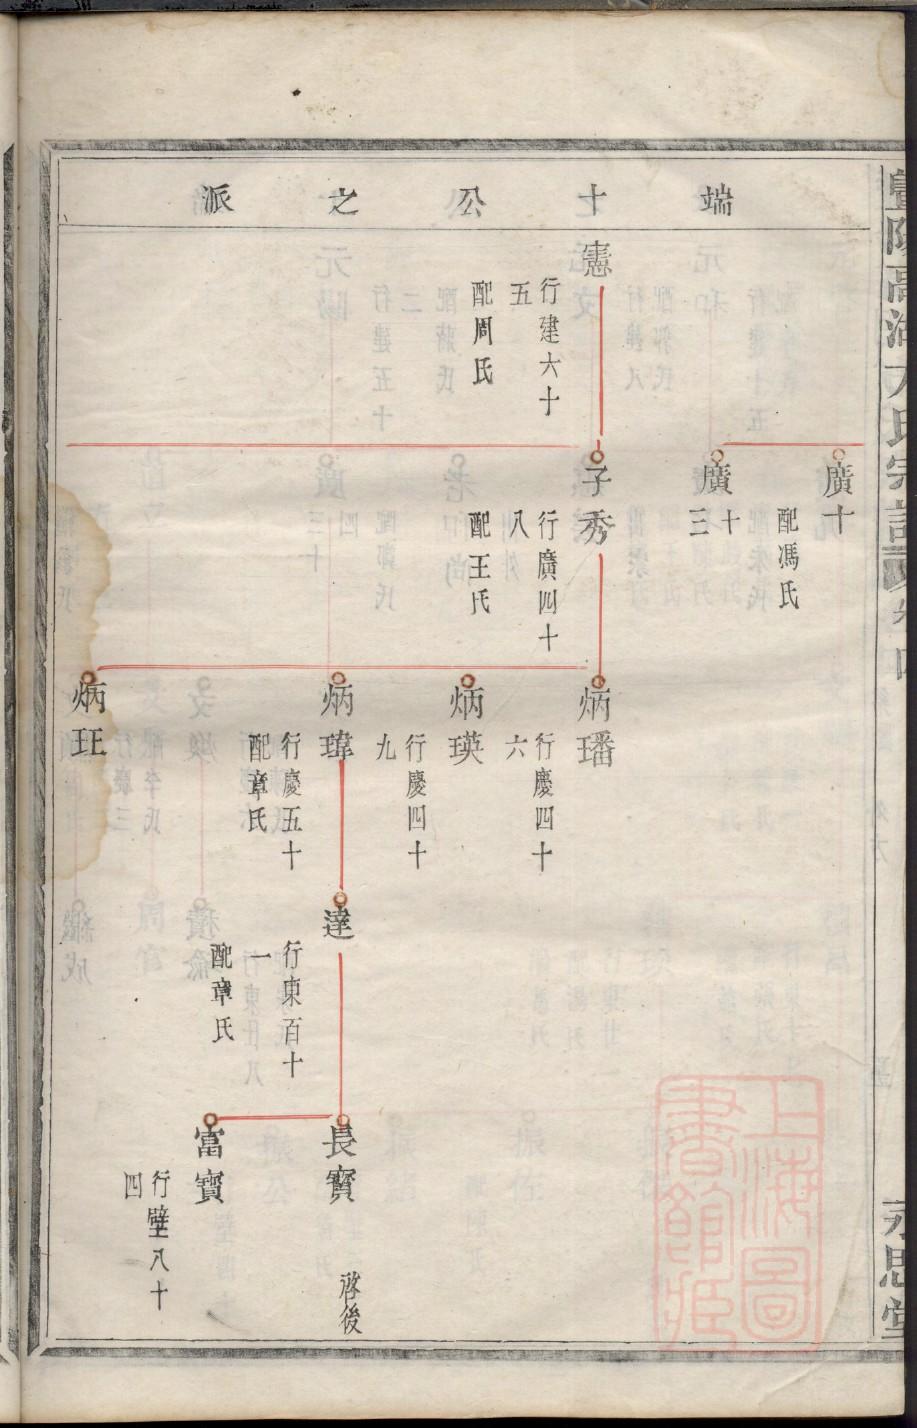 暨陽高湖方氏宗譜
卷四
永思堂
端十公之派
憲
行建六十
五
配周氏
廣十
配馮氏
廣十
三
子秀
行廣四十
八
配王氏
炳璠
行慶四十
六
炳瑛
行慶四十
九
炳瑋
行慶五十
配章氏
炳玨
達
行東百十
一
配章氏
長寶
啓後
富寶
行壁八十
四
上海圖
書館藏